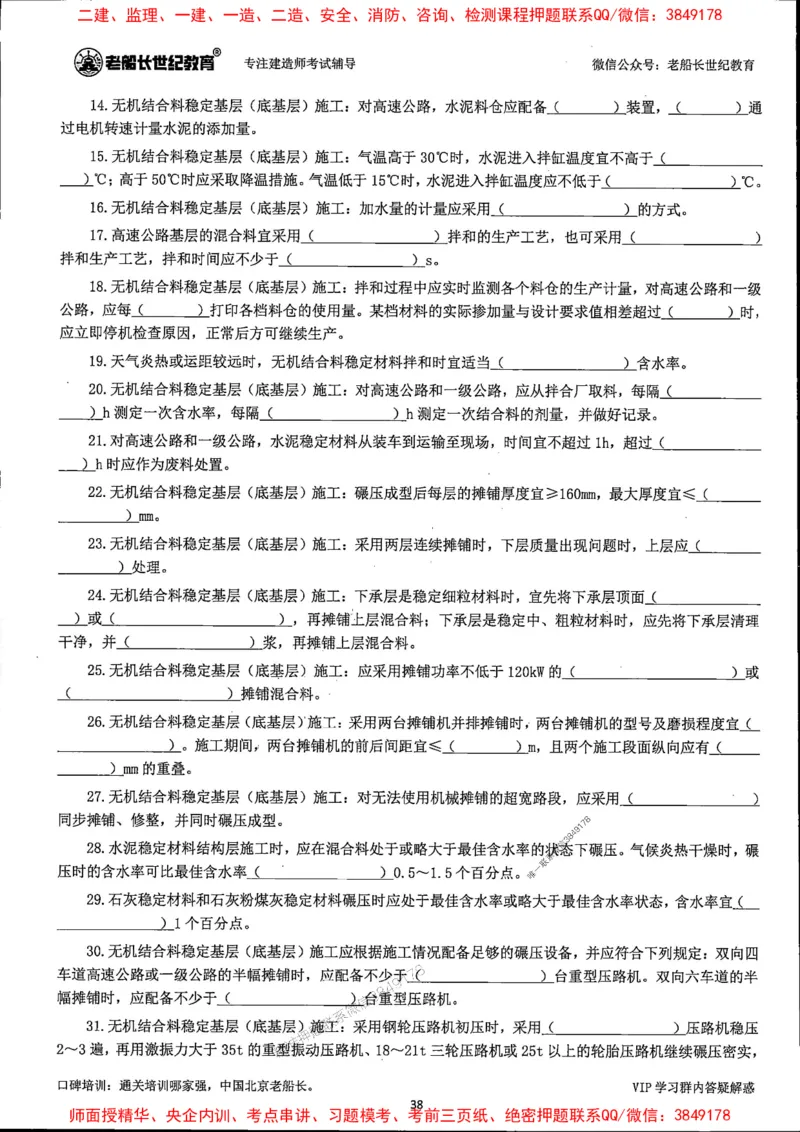 二建、监理、一建、一造、二造、安全、消防、咨询、检测课程押题联系QQ/微信：3849178
老船长世纪教育® 专注建造师考试辅导 微信公众号：老船长世纪教育
14.无机结合料稳定基层（底基层）施工：对高速公路，水泥料仓应配备（　　）装置，（　　）通
过电机转速计量水泥的添加量。
15.无机结合料稳定基层（底基层）施工：气温高于30℃时，水泥进入拌缸温度宜不高于（
　　）℃；高于50℃时应采取降温措施。气温低于15℃时，水泥进入拌缸温度应不低于（　　）℃。
16.无机结合料稳定基层（底基层）施工：加水量的计量应采用（　　）的方式。
17.高速公路基层的混合料宜采用（　　）拌和的生产工艺，也可采用（　　）
拌和生产工艺，拌和时间应不少于（　　）s。
18.无机结合料稳定基层（底基层）施工：拌和过程中应实时监测各个料仓的生产计量，对高速公路和一级
公路，应每（　　）打印各档料仓的使用量。某档材料的实际掺加量与设计要求值相差超过（　　）时，
应立即停机检查原因，正常后方可继续生产。
19.天气炎热或运距较远时，无机结合料稳定材料拌和时宜适当（　　）含水率。
20.无机结合料稳定基层（底基层）施工：对高速公路和一级公路，应从拌合厂取料，每隔（
　　）h测定一次含水率，每隔（　　）h测定一次结合料的剂量，并做好记录。
21.对高速公路和一级公路，水泥稳定材料从装车到运输至现场，时间宜不超过1h，超过（
　　）h时应作为废料处置。
22.无机结合料稳定基层（底基层）施工：碾压成型后每层的摊铺厚度宜≥160mm，最大厚度宜≤（
　　）mm。
23.无机结合料稳定基层（底基层）施工：采用两层连续摊铺时，下层质量出现问题时，上层应（
　　）处理。
24.无机结合料稳定基层（底基层）施工：下承层是稳定细粒材料时，宜先将下承层顶面（
　　）或（　　），再摊铺上层混合料；下承层是稳定中、粗粒材料时，应先将下承层清理
干净，并（　　）浆，再摊铺上层混合料。
25.无机结合料稳定基层（底基层）施工：应采用摊铺功率不低于120kW的（　　）或
（　　）摊铺混合料。
26.无机结合料稳定基层（底基层）施工：采用两台摊铺机并排摊铺时，两台摊铺机的型号及磨损程度宜（
　　）。施工期间，两台摊铺机的前后间距宜≤（　　）m，且两个施工段面纵向应有（
　　）mm的重叠。
27.无机结合料稳定基层（底基层）施工：对无法使用机械摊铺的超宽路段，应采用（　　）
同步摊铺、修整，并同时碾压成型。
28.水泥稳定材料结构层施工时，应在混合料处于或略大于最佳含水率的状态下碾压。气候炎热干燥时，碾
压时的含水率可比最佳含水率（　　）0.5～1.5个百分点。
29.石灰稳定材料和石灰粉煤灰稳定材料碾压时应处于最佳含水率或略大于最佳含水率状态，含水率宜（
　　）1个百分点。
30.无机结合料稳定基层（底基层）施工应根据施工情况配备足够的碾压设备，并应符合下列规定：双向四
车道高速公路或一级公路的半幅摊铺时，应配备不少于（　　）台重型压路机。双向六车道的半
幅摊铺时，应配备不少于（　　）台重型压路机。
31.无机结合料稳定基层（底基层）施工：采用钢轮压路机初压时，采用（　　）压路机稳压
2～3遍，再用激振力大于35t的重型振动压路机、18～21t三轮压路机或25t以上的轮胎压路机继续碾压密实，
口碑培训：通关培训哪家强，中国北京老船长。 VIP学习群内答疑解惑
38
师面授精华、央企内训、考点串讲、习题模考、考前三页纸、绝密押题联系QQ/微信：3849178